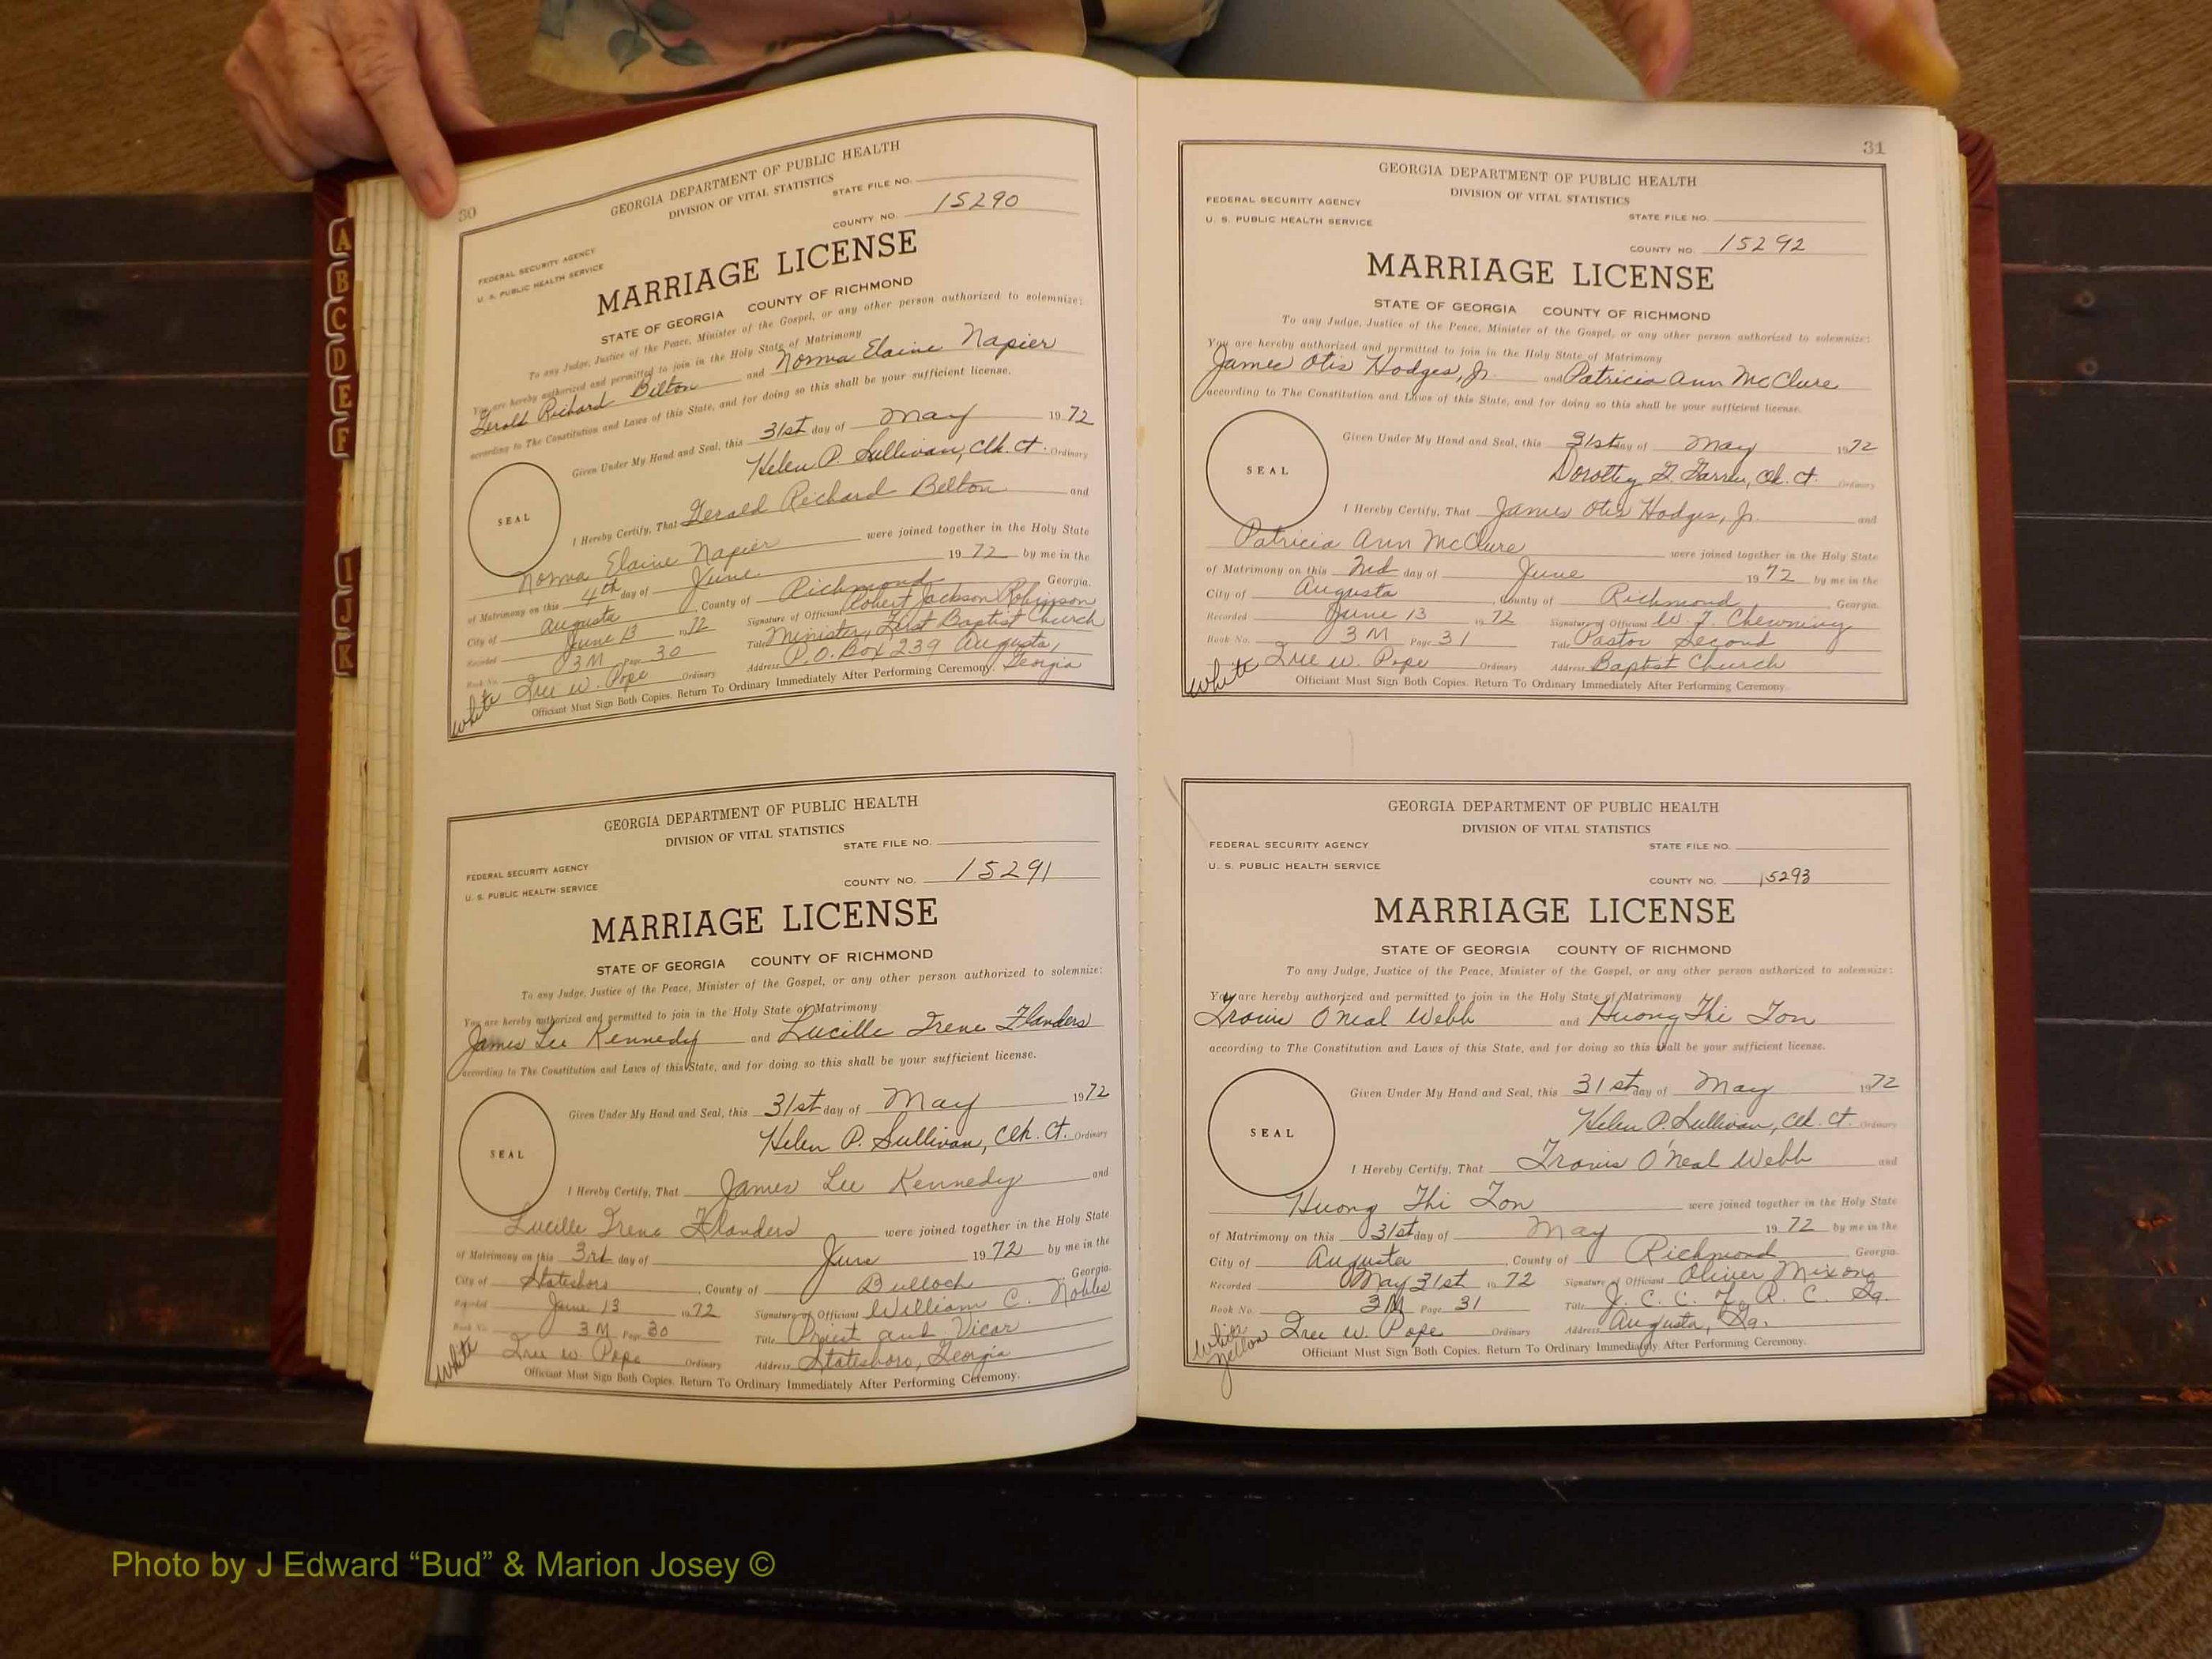 A
B
C
D
E
F
I
J
K
30
GEORGIA DEPARTMENT OF PUBLIC HEALTH
DIVISION OF VITAL STATISTICS
STATE FILE NO.
COUNTY NO. 15290
FEDERAL SECURITY AGENCY
U. S. PUBLIC HEALTH SERVICE
MARRIAGE LICENSE
STATE OF GEORGIA COUNTY OF RICHMOND
To any Judge, Justice of the Peace, Minister of the Gospel, or any other person authorized to solemnize:
You are hereby authorized and permitted to join in the Holy State of Matrimony
Gerald Richard Belton and Norma Elaine Napier
according to The Constitution and Laws of this State, and for doing so this shall be your sufficient license.
Given Under My Hand and Seal, this 31st day of May 1972
Helen P. Sullivan, Clk. Ct. Ordinary
SEAL
I Hereby Certify, That Gerald Richard Belton and
Norma Elaine Napier were joined together in the Holy State
of Matrimony on this 4th day of June 1972 by me in the
City of Augusta, County of Richmond Georgia.
Recorded June 13 1972 Signature of Officiant Robert Jackson Robinson
Book No. 3M Page 30 Title Minister, First Baptist Church
White W. Pope Ordinary Address P.O. Box 239 Augusta, Georgia
Officiant Must Sign Both Copies. Return To Ordinary Immediately After Performing Ceremony.
GEORGIA DEPARTMENT OF PUBLIC HEALTH
DIVISION OF VITAL STATISTICS
STATE FILE NO.
FEDERAL SECURITY AGENCY
U. S. PUBLIC HEALTH SERVICE
COUNTY NO. 15291
MARRIAGE LICENSE
STATE OF GEORGIA COUNTY OF RICHMOND
To any Judge, Justice of the Peace, Minister of the Gospel, or any other person authorized to solemnize:
You are hereby authorized and permitted to join in the Holy State of Matrimony
James Lee Kennedy and Lucille Irene Flanders
according to The Constitution and Laws of this State, and for doing so this shall be your sufficient license.
Given Under My Hand and Seal, this 31st day of May 1972
Helen P. Sullivan, Clk. Ct. Ordinary
SEAL
I Hereby Certify, That James Lee Kennedy and
Lucille Irene Flanders were joined together in the Holy State
of Matrimony on this 3rd day of June 1972 by me in the
City of Statesboro, County of Bulloch Georgia.
Recorded June 13 1972 Signature of Officiant William C. Nobles
Book No. 3M Page 30 Title Priest and Vicar
White W. Pope Ordinary Address Statesboro, Georgia
Officiant Must Sign Both Copies. Return To Ordinary Immediately After Performing Ceremony.
31
GEORGIA DEPARTMENT OF PUBLIC HEALTH
DIVISION OF VITAL STATISTICS
FEDERAL SECURITY AGENCY
U. S. PUBLIC HEALTH SERVICE
STATE FILE NO.
COUNTY NO. 15292
MARRIAGE LICENSE
STATE OF GEORGIA COUNTY OF RICHMOND
To any Judge, Justice of the Peace, Minister of the Gospel, or any other person authorized to solemnize:
You are hereby authorized and permitted to join in the Holy State of Matrimony
James Otis Hodges, Jr. and Patricia Ann McClure
according to The Constitution and Laws of this State, and for doing so this shall be your sufficient license.
Given Under My Hand and Seal, this 31st day of May 1972
Dorothy Clk. Ct. Ordinary
SEAL
I Hereby Certify, That James Otis Hodges, Jr. and
Patricia Ann McClure were joined together in the Holy State
of Matrimony on this 2nd day of June 1972 by me in the
City of Augusta, County of Richmond, Georgia.
Recorded June 13 1972 Signature of Officiant Chewning
Book No. 3M Page 31 Title Pastor Second
White W. Pope Ordinary Address Baptist Church
Officiant Must Sign Both Copies. Return To Ordinary Immediately After Performing Ceremony.
GEORGIA DEPARTMENT OF PUBLIC HEALTH
DIVISION OF VITAL STATISTICS
FEDERAL SECURITY AGENCY
STATE FILE NO.
U. S. PUBLIC HEALTH SERVICE
COUNTY NO. 15293
MARRIAGE LICENSE
STATE OF GEORGIA COUNTY OF RICHMOND
To any Judge, Justice of the Peace, Minister of the Gospel, or any other person authorized to solemnize:
You are hereby authorized and permitted to join in the Holy State of Matrimony
Travis O'Neal Webb and Huong Thi Ton
according to The Constitution and Laws of this State, and for doing so this shall be your sufficient license.
Given Under My Hand and Seal, this 31st day of May 1972
Helen P. Sullivan, Clk. Ct. Ordinary
SEAL
I Hereby Certify, That Travis O'Neal Webb and
Huong Thi Ton were joined together in the Holy State
of Matrimony on this 31st day of May 1972 by me in the
City of Augusta, County of Richmond Georgia.
Recorded May 31st 1972 Signature of Officiant Oliver Mixon
Book No. 3M Page 31 Title J. C. C. R. C. Ga.
White Yellow W. Pope Ordinary Address Augusta, Ga.
Officiant Must Sign Both Copies. Return To Ordinary Immediately After Performing Ceremony.
Photo by J Edward “Bud” & Marion Josey ©